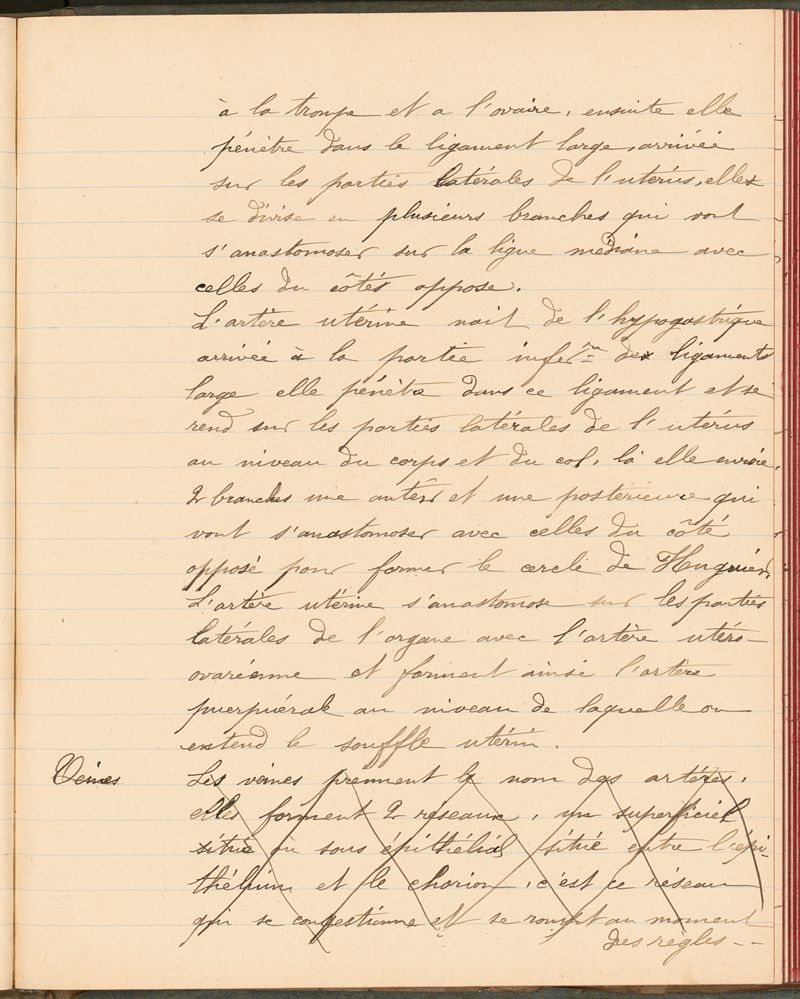 à la trompe et a l'ovaire, ensuite elle
pénètre dans le ligament large, arrivée
sur les parties latérales de l'utérus, elle
se divise en plusieurs branches qui vont
s'anastomoser sur la ligne médiane avec
celles du côtés oppose.
L'artère utérine nait de l'hypogastrique
arrivée à la partie infér^re de ligaments
large elle pénètre dans ce ligament et se
rend sur les parties latérales de l'utérus
au niveau du corps et du col, là elle envoie,
2 branches une antér et une postérieure qui
vont s'anastomoser avec celles du côté
opposé pour former le cercle de Huguier.
L'artère utérine s'anastomose sur les parties
latérales de l'organe avec l'artère utéro-
ovarienne et forment ainsi l'artère
puerpuérale au niveau de laquelle on
entend le souffle utérin.
Veines Les veines prennent le nom des artères,
elles forment 2 réseaux, un superficiel
situé ou sous épithélial situé entre l'épi-
thélium et le chorion, c'est ce réseau
qui se congestionne et se rompt au moment
des règles - -